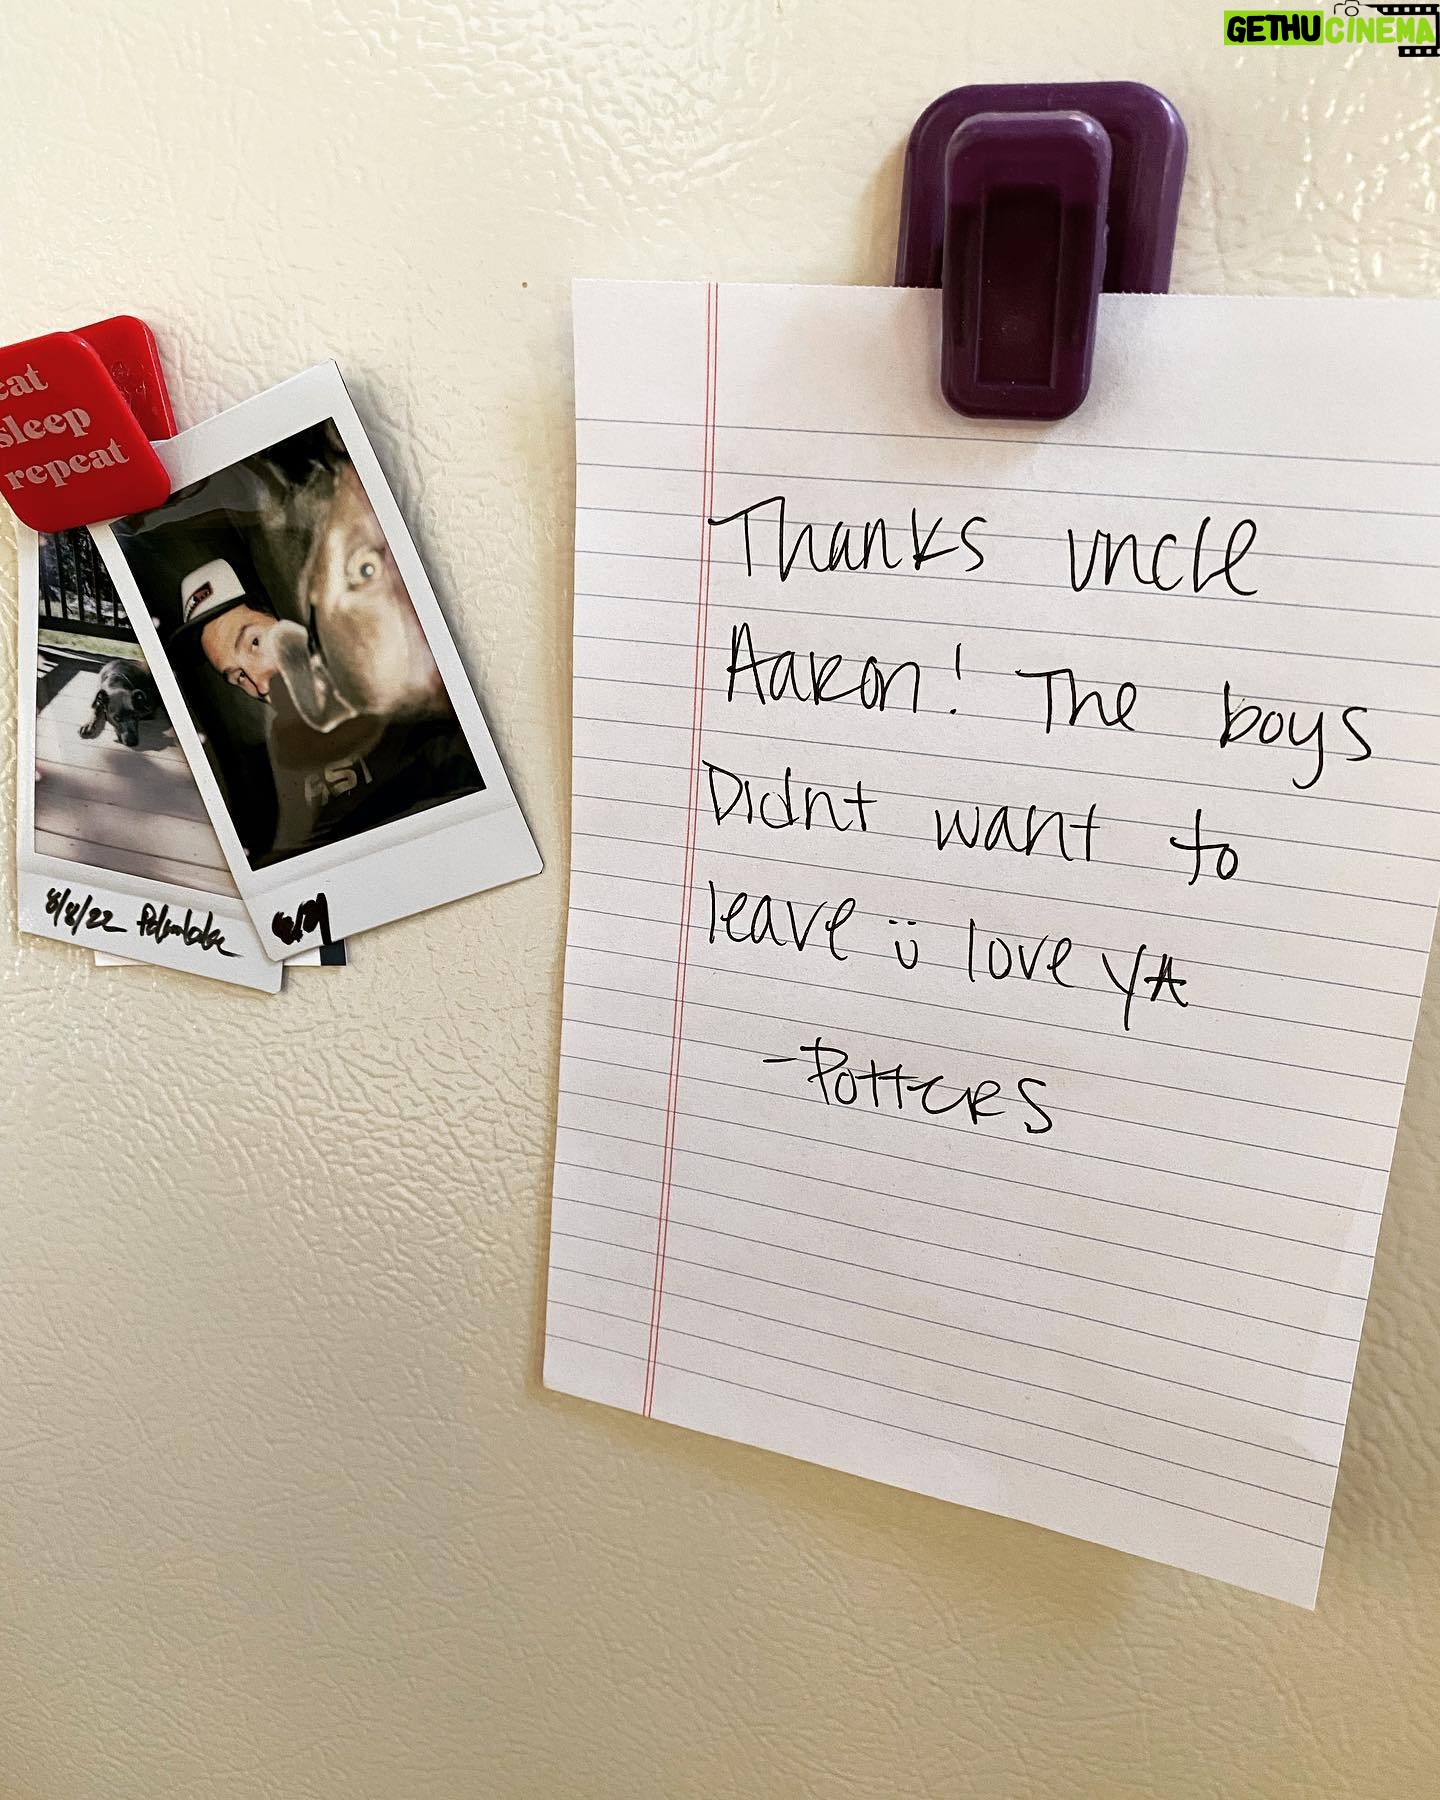 GETHUCINEMA
eat
sleep
repeat
Thanks uncle
Aaron! The boys
Didnt want to
leave ü love YA
-Potters
8/8/22